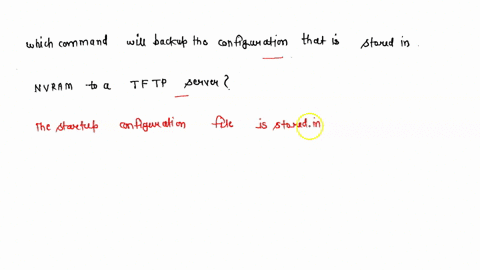 which command will backup the configuration that is stored in
NVRAM to a TFTP server?
The startup configuration file is stored in